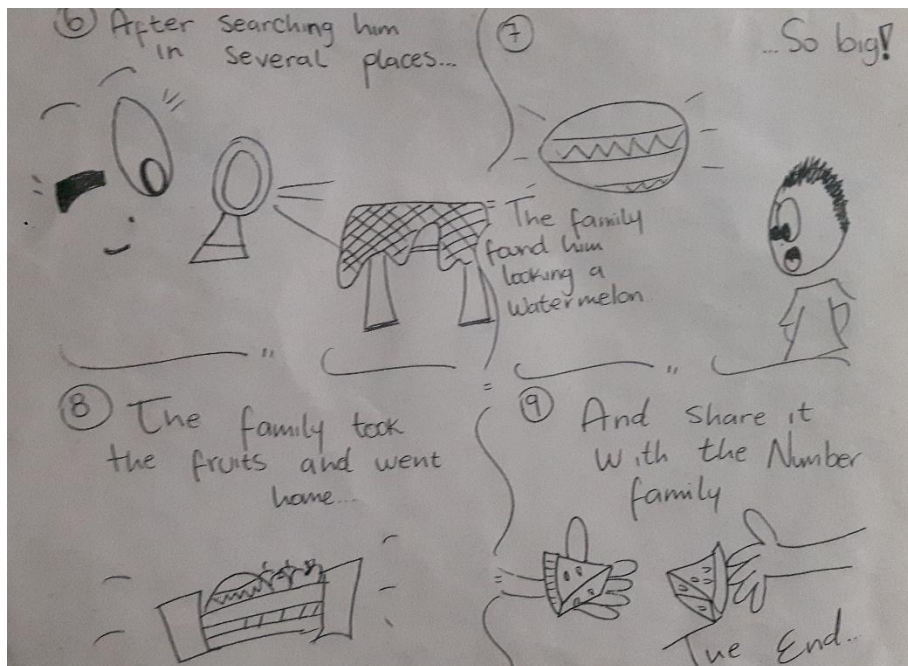 6 After searching him
in several places...
7
...So big!
The family
found him
looking a
watermelon
8 The family took
the fruits and went
home...
9 And share it
with the Number
family
The End..